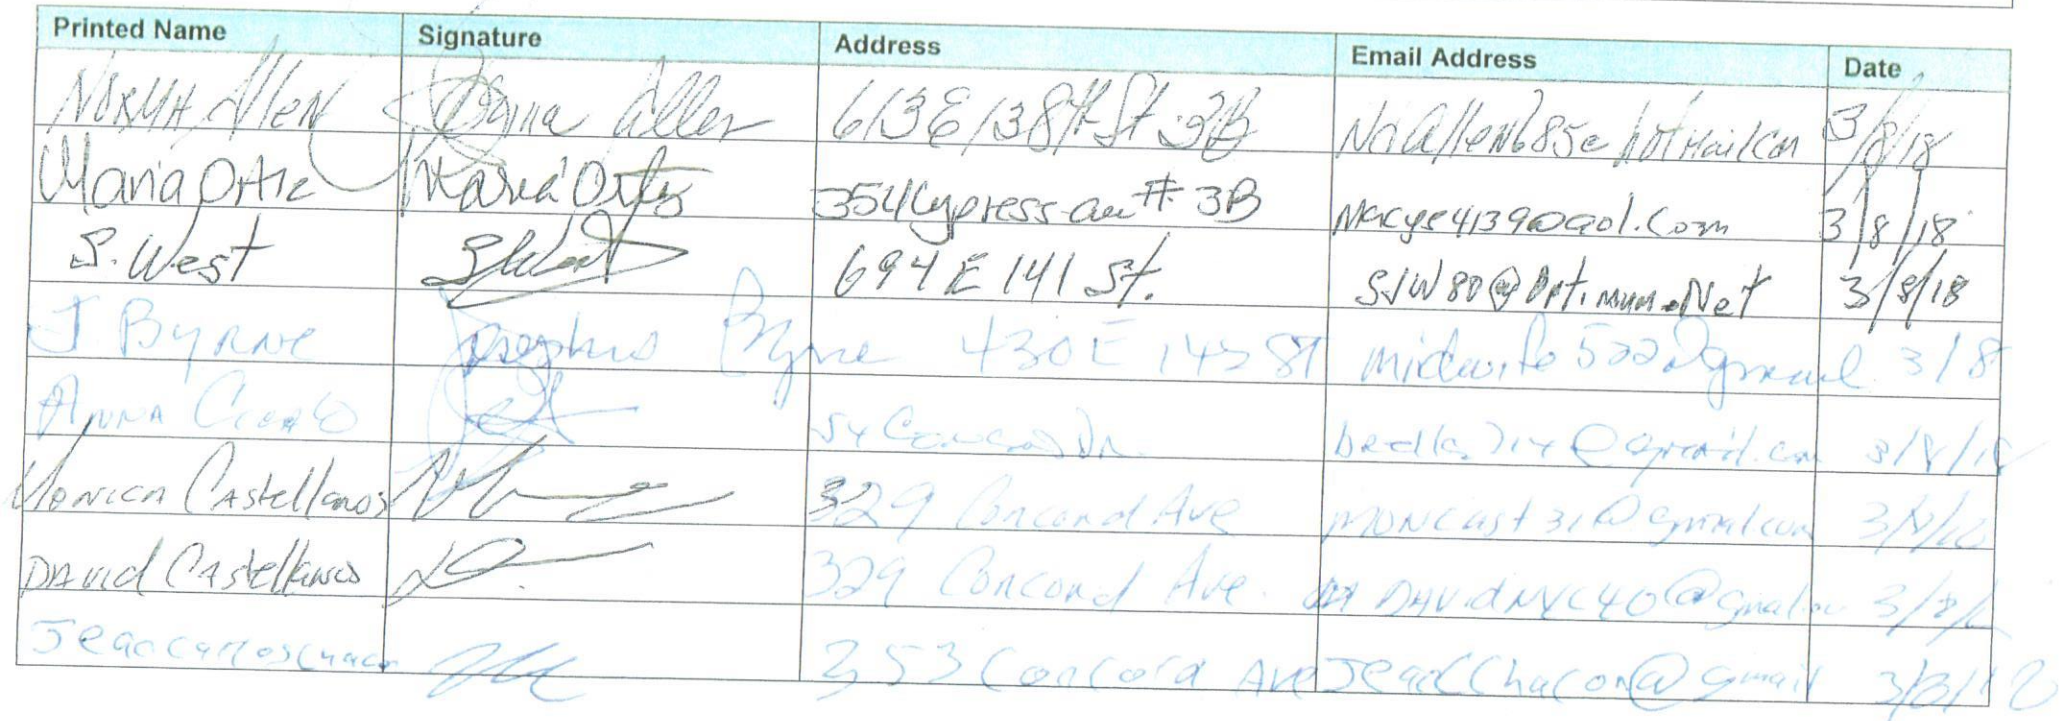 Printed Name Signature Address Email Address Date
Norma Allen Norma Allen 613 E 138th St 3B NorAllen685@hotmail.com 3/8/18
Maria Ortiz Maria Ortiz 354 Cypress ave # 3B Macys4139@aol.com 3/8/18
S. West S West 694 E 141 St. SJW80@Optimum.Net 3/8/18
J Byrne Josephine Byrne 430 E 143 ST midwife522@gmail 3/8
Anna 54 Concord @gmail.com 3/8/18
Monica Castellanos 329 Concord Ave MONCast31@gmail.com 3/8/18
David Castellanos 329 Concord Ave. DAVIDNYC40@gmail 3/8/18
Jeancarloschacon 353 Concord Ave JeanCChacon@gmail 3/8/18